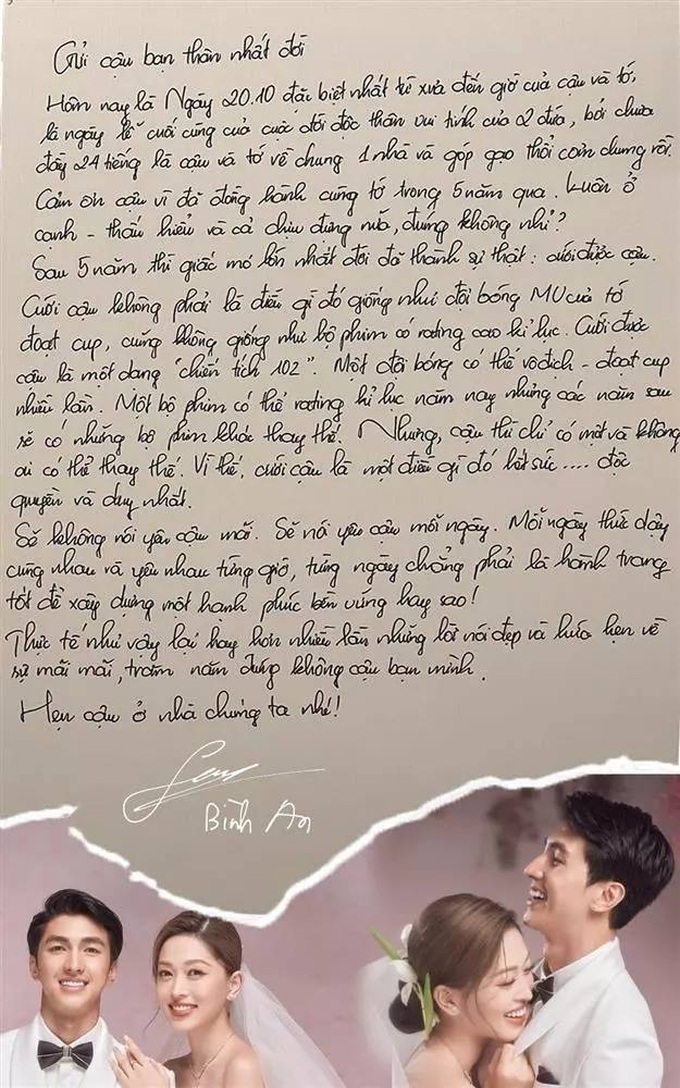 Gửi cậu bạn thân nhất đời
Hôm nay là Ngày 20.10 đặc biệt nhất từ xưa đến giờ của cậu và tớ,
là ngày lễ cuối cùng của cuộc đời độc thân vui tính của 2 đứa, bởi chưa
đầy 24 tiếng là cậu và tớ về chung 1 nhà và góp gạo thổi cơm chung rồi.
Cảm ơn cậu vì đã đồng hành cùng tớ trong 5 năm qua. Luôn ở
cạnh - thấu hiểu và cả chịu đựng nữa, đúng không nhỉ?
Sau 5 năm thì giấc mơ lớn nhất đời đã thành sự thật: cưới được cậu.
Cưới cậu không phải là điều gì đó giống như đội bóng MU của tớ
đoạt cup, cũng không giống như bộ phim có rating cao kỉ lục. Cưới được
cậu là một dạng "chiến tích 102". Một đội bóng có thể vô địch - đoạt cup
nhiều lần. Một bộ phim có thể rating kỉ lục năm nay nhưng các năm sau
sẽ có những bộ phim khác thay thế. Nhưng, cậu thì chỉ có một và không
ai có thể thay thế. Vì thế, cưới cậu là một điều gì đó hết sức .... độc
quyền và duy nhất.
Sẽ không nói yêu cậu mãi. Sẽ nói yêu cậu mỗi ngày. Mỗi ngày thức dậy
cùng nhau và yêu nhau từng giờ, từng ngày chẳng phải là hành trang
tốt để xây dựng một hạnh phúc bền vững hay sao!
Thực tế như vậy lại hay hơn nhiều lần những lời nói đẹp và hứa hẹn về
sự mãi mãi, trăm năm đúng không cậu bạn mình.
Hẹn cậu ở nhà chúng ta nhé!
Bình An